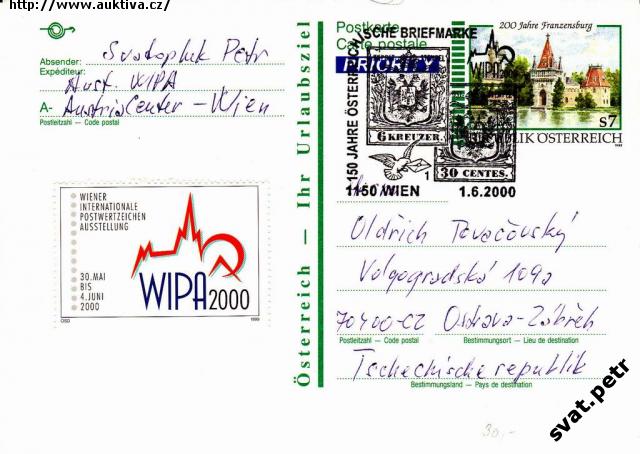 http://www.auktiva.cz/
Absender:
Expéditeur:
Svatopluk Petr
Aust. WIPA
A- AustriaCenter - Wien
Postleitzahl — Code postal
WIENER
INTERNATIONALE
POSTWERTZEICHEN
AUSSTELLUNG
30. MAI
BIS
4. JUNI
2000
WIPA 2000
ÖSD
1999
Österreich — Ihr Urlaubsziel
Postkarte
Carte postale
PRIORITY
150 JAHRE ÖSTERREICHISCHE BRIEFMARKE
WIPA 2000
6 KREUZER
30 CENTES.
1
1150 WIEN 1.6.2000
200 Jahre Franzensburg
s7
REPUBLIK ÖSTERREICH
Oldřich Tovačovský
Volgogradská 109a
70400-CZ Ostrava-Zábřeh
Postleitzahl — Code postal Bestimmungsort — Lieu de destination
Tschechische republik
Bestimmungsland — Pays de destination
30,-
svat.petr